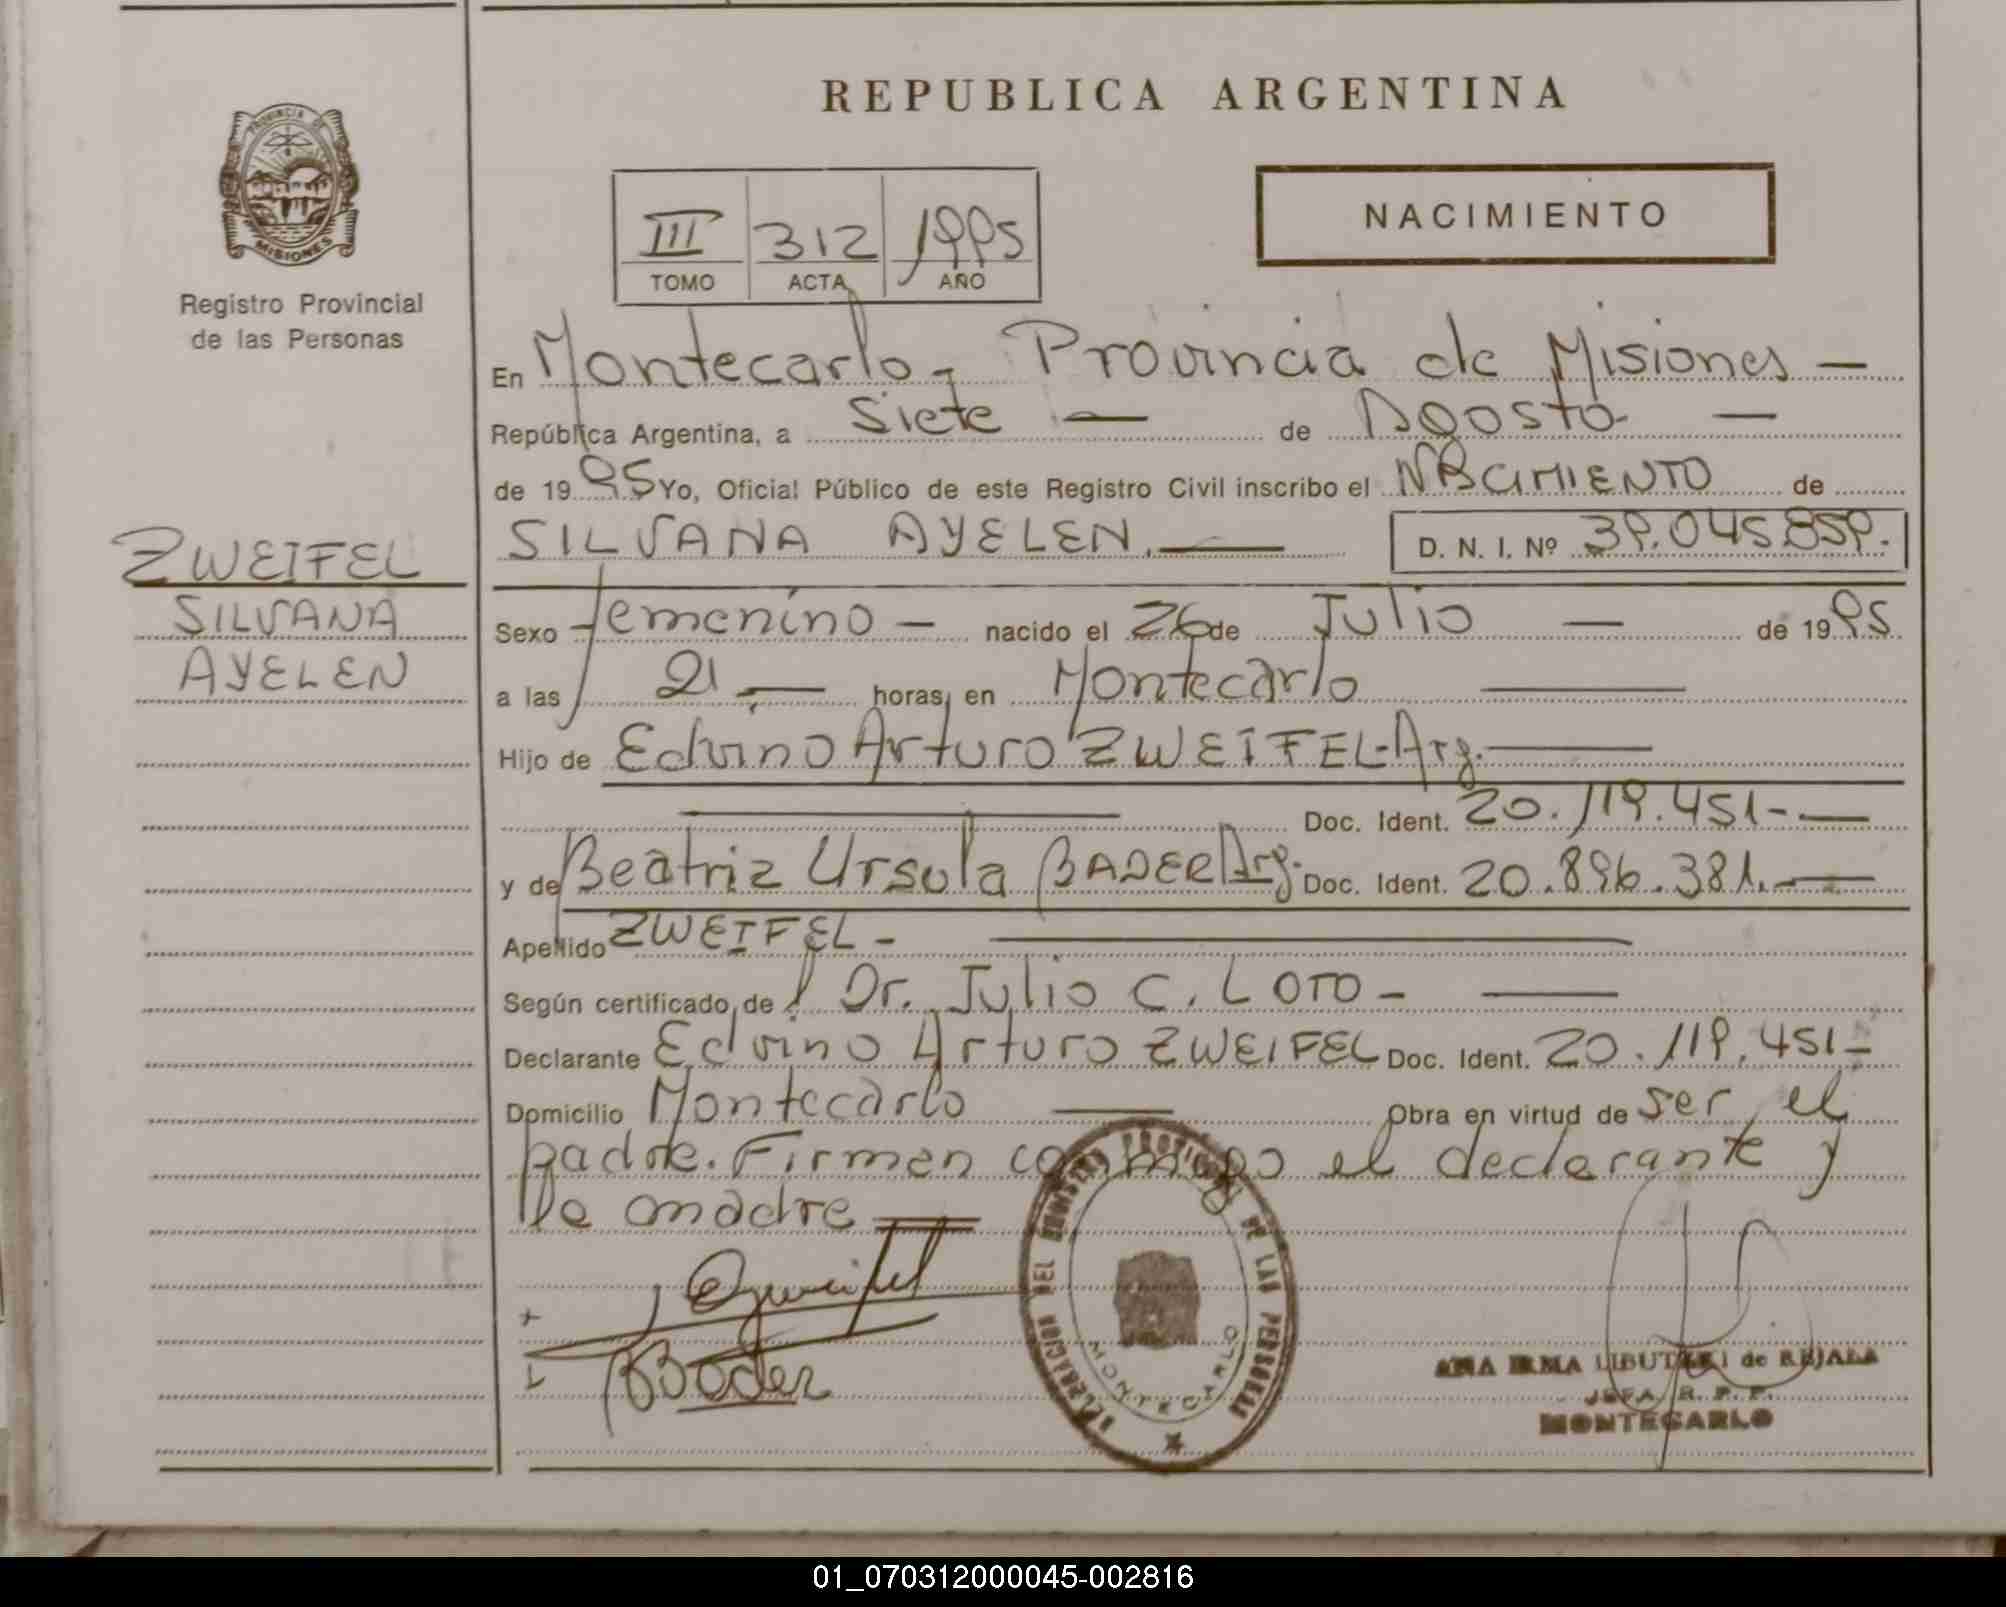 REPUBLICA ARGENTINA
PROVINCIA DE
MISIONES
Registro Provincial
de las Personas
III 312 1995
TOMO ACTA AÑO
NACIMIENTO
En Montecarlo, Provincia de Misiones —
República Argentina, a Siete — de Agosto — 
de 1995 Yo, Oficial Público de este Registro Civil inscribo el NACIMIENTO de
SILVANA AYELEN. — D. N. I. Nº 39.045.859.
ZWEIFEL
SILVANA
AYELEN
Sexo femenino — nacido el 26 de Julio — de 1995
a las 21 — horas, en Montecarlo —
Hijo de Edvino Arturo ZWEIFEL-Arg. —
— Doc. Ident. 20.119.451- —
y de Beatriz Ursula BADER Arg. Doc. Ident. 20.896.381. —
Apellido ZWEIFEL - —
Según certificado de Dr. Julio C. LOTO - —
Declarante Edvino Arturo ZWEIFEL Doc. Ident. 20.119.451-
Domicilio Montecarlo — Obra en virtud de ser el
padre. Firman conmigo el declarante y
la madre —
Zweifel
BBader
DELEGACION DEL REGISTRO PROVINCIAL DE LAS PERSONAS
MONTECARLO
ANA IRMA de REJALA
JEFA R. P. P.
MONTECARLO
01_070312000045-002816